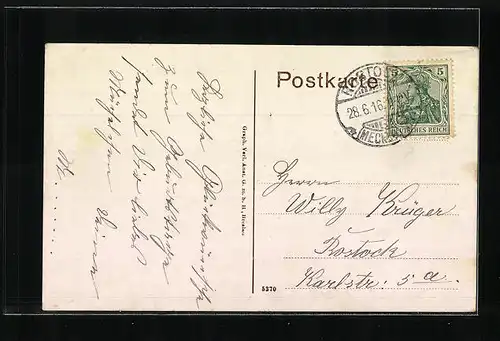 Postkarte
ROSTOCK
28.6.16
(MECKL
5 5
DEUTSCHES REICH
Herzliche Glückwünsche
zum Geburtstage
sendet Dir lieber
Graph. Verl. Anst. G. m. b. H., Breslau
Herrn
Willy Krüger
Rostock
Karlstr. 5 a.
5370